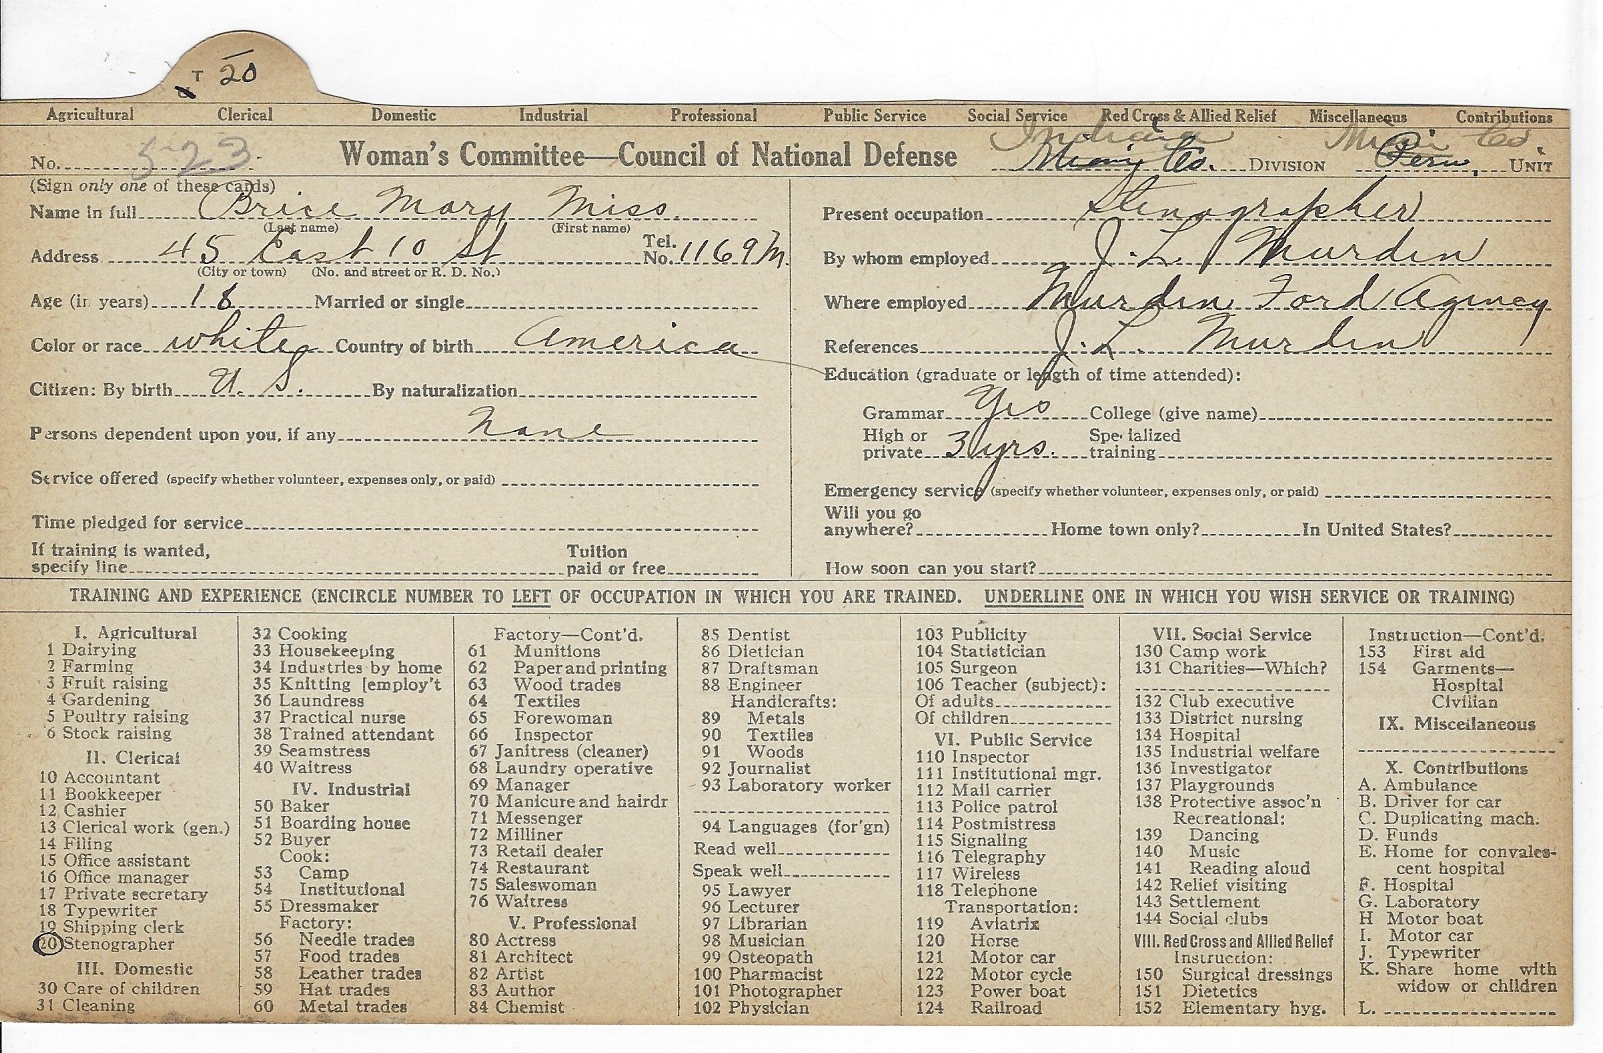 T 20
Agricultural Clerical Domestic Industrial Professional Public Service Social Service Red Cross & Allied Relief Miscellaneous Contributions
Indiana Miami Co.
No. 523 Woman's Committee—Council of National Defense Miami Co. DIVISION Peru, UNIT
(Sign only one of these cards)
Name in full Brice Mary Miss.
(Last name) (First name)
Address 45 East 10 St Tel. No. 1169M.
(City or town) (No. and street or R. D. No.)
Age (in years) 18 Married or single
Color or race white Country of birth America
Citizen: By birth U. S. By naturalization
Persons dependent upon you, if any None
Service offered (specify whether volunteer, expenses only, or paid)
Time pledged for service
If training is wanted, specify line Tuition paid or free
Present occupation Stenographer
By whom employed J. L. Murden
Where employed Murden Ford Agency
References J. L. Murden
Education (graduate or length of time attended):
Grammar Yes College (give name)
High or private 3 yrs. Specialized training
Emergency service (specify whether volunteer, expenses only, or paid)
Will you go anywhere? Home town only? In United States?
How soon can you start?
TRAINING AND EXPERIENCE (ENCIRCLE NUMBER TO LEFT OF OCCUPATION IN WHICH YOU ARE TRAINED. UNDERLINE ONE IN WHICH YOU WISH SERVICE OR TRAINING)
I. Agricultural
1 Dairying
2 Farming
3 Fruit raising
4 Gardening
5 Poultry raising
6 Stock raising
II. Clerical
10 Accountant
11 Bookkeeper
12 Cashier
13 Clerical work (gen.)
14 Filing
15 Office assistant
16 Office manager
17 Private secretary
18 Typewriter
19 Shipping clerk
20 Stenographer
III. Domestic
30 Care of children
31 Cleaning
32 Cooking
33 Housekeeping
34 Industries by home
35 Knitting [employ't
36 Laundress
37 Practical nurse
38 Trained attendant
39 Seamstress
40 Waitress
IV. Industrial
50 Baker
51 Boarding house
52 Buyer
Cook:
53 Camp
54 Institutional
55 Dressmaker
Factory:
56 Needle trades
57 Food trades
58 Leather trades
59 Hat trades
60 Metal trades
Factory—Cont'd.
61 Munitions
62 Paper and printing
63 Wood trades
64 Textiles
65 Forewoman
66 Inspector
67 Janitress (cleaner)
68 Laundry operative
69 Manager
70 Manicure and hairdr
71 Messenger
72 Milliner
73 Retail dealer
74 Restaurant
75 Saleswoman
76 Waitress
V. Professional
80 Actress
81 Architect
82 Artist
83 Author
84 Chemist
85 Dentist
86 Dietician
87 Draftsman
88 Engineer
Handicrafts:
89 Metals
90 Textiles
91 Woods
92 Journalist
93 Laboratory worker
94 Languages (for'gn)
Read well
Speak well
95 Lawyer
96 Lecturer
97 Librarian
98 Musician
99 Osteopath
100 Pharmacist
101 Photographer
102 Physician
103 Publicity
104 Statistician
105 Surgeon
106 Teacher (subject):
Of adults
Of children
VI. Public Service
110 Inspector
111 Institutional mgr.
112 Mail carrier
113 Police patrol
114 Postmistress
115 Signaling
116 Telegraphy
117 Wireless
118 Telephone
Transportation:
119 Aviatrix
120 Horse
121 Motor car
122 Motor cycle
123 Power boat
124 Railroad
VII. Social Service
130 Camp work
131 Charities—Which?
132 Club executive
133 District nursing
134 Hospital
135 Industrial welfare
136 Investigator
137 Playgrounds
138 Protective assoc'n
Recreational:
139 Dancing
140 Music
141 Reading aloud
142 Relief visiting
143 Settlement
144 Social clubs
VIII. Red Cross and Allied Relief
Instruction:
150 Surgical dressings
151 Dietetics
152 Elementary hyg.
Instruction—Cont'd.
153 First aid
154 Garments—
Hospital
Civilian
IX. Miscellaneous
X. Contributions
A. Ambulance
B. Driver for car
C. Duplicating mach.
D. Funds
E. Home for convales-
cent hospital
F. Hospital
G. Laboratory
H Motor boat
I. Motor car
J. Typewriter
K. Share home with
widow or children
L.